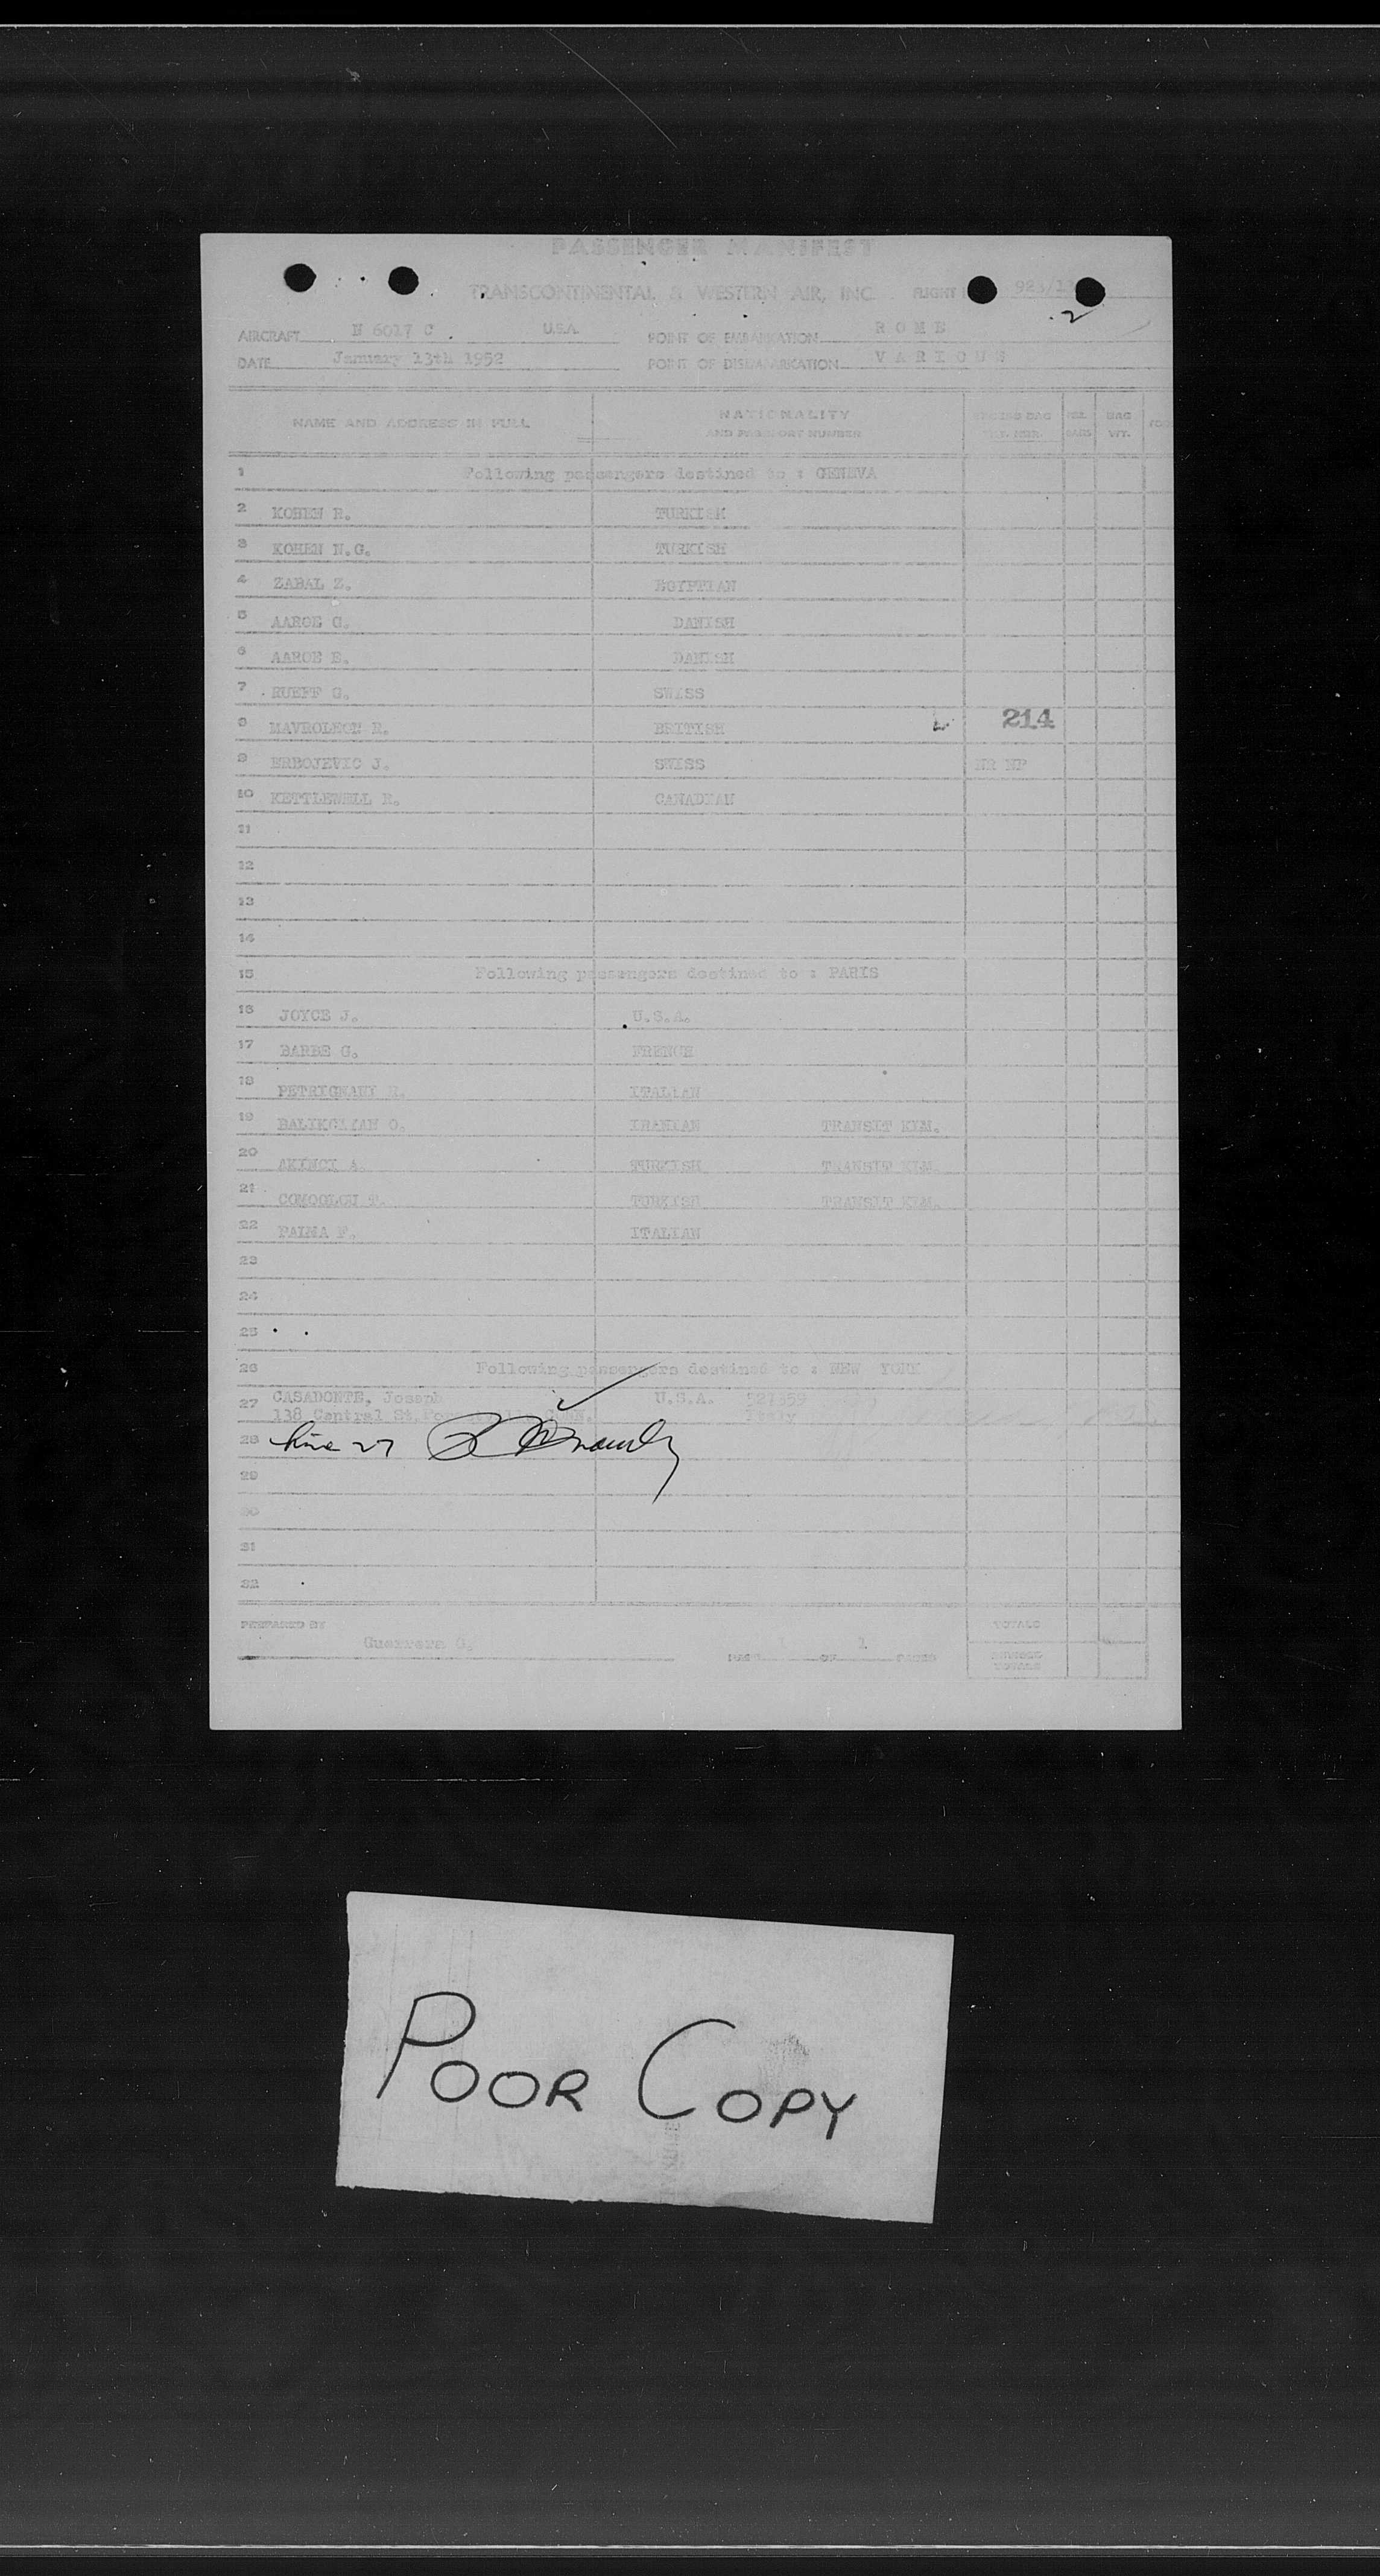 PASSENGER MANIFEST
TRANSCONTINENTAL & WESTERN AIR, INC. FLIGHT
AIRCRAFT N 6017 C U.S.A. POINT OF EMBARKATION ROME
DATE January 13th 1952 POINT OF DISEMBARKATION VARIOUS
NAME AND ADDRESS IN FULL NATIONALITY AND PASSPORT NUMBER EXCESS BAG TKT. NBR. NBR. BAGS BAG WT.
1 Following passengers destined to : GENEVA
2 KOHEN R. TURKISH
3 KOHEN N.G. TURKISH
4 ZABAL Z. EGYPTIAN
5 AAROE G. DANISH
6 AAROE E. DANISH
7 RUEFF G. SWISS
8 MAVROLEON R. BRITISH 214
9 ERBOJEVIC J. SWISS NR NP
10 KETTLEWELL R. CANADIAN
11
12
13
14
15 Following passengers destined to : PARIS
16 JOYCE J. U.S.A.
17 BARBE G. FRENCH
18 PETRIGNANI R. ITALIAN
19 BALIKCIYAN O. IRANIAN TRANSIT KLM.
20 AKINCI A. TURKISH TRANSIT KLM.
21 COMOOLOU T. TURKISH TRANSIT KLM.
22 PALMA F. ITALIAN
23
24
25
26 Following passengers destined to : NEW YORK
27 CASADONTE, Joseph U.S.A.
138 Central St. Italy
28 line 27
29
30
31
32
PREPARED BY Guerrera G. PAGE 1 OF 1 PAGES TOTALS
TOTALS
POOR COPY